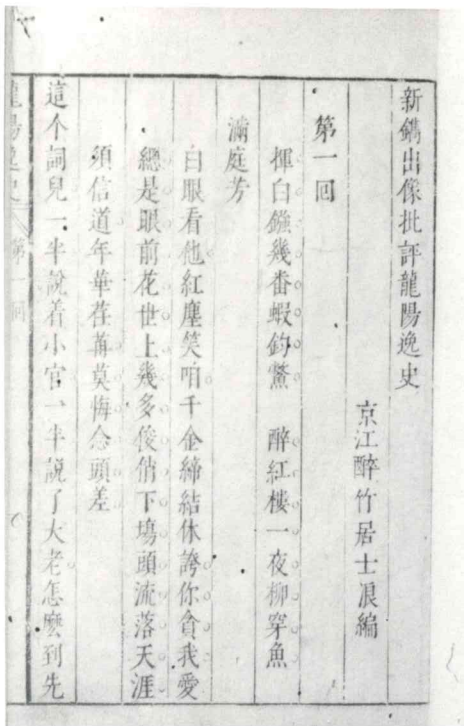 新鐫出像批評龍陽逸史
京江醉竹居士浪編
第一回
揮白鏹幾番蝦釣鰲　醉紅樓一夜柳穿魚
滿庭芳
白眼看他紅塵笑咱千金締結休誇你貪我愛
總是眼前花世上幾多俊俏下塲頭流落天涯
須信道年華荏苒莫悔念頭差
這个詞兒一半說着小官一半說了大老怎麽到先
龍陽逸史　第一回